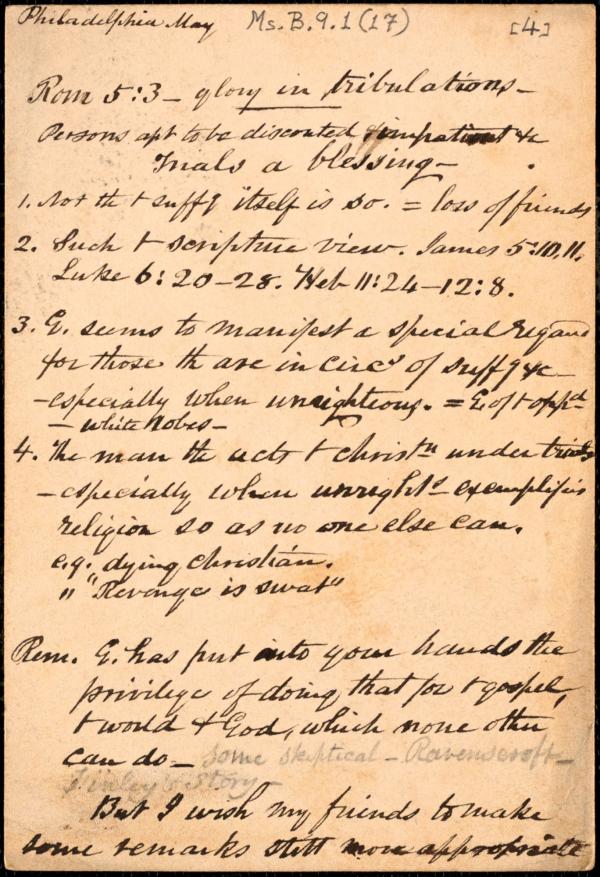 Philadelphia May Ms. B. 9. 1 (17) [4]
Rom 5:3 - glory in tribulations -
Persons apt to be disconted & impatient &c
Trials a blessing -
1. Not th t suffg itself is so. = loss of friends
2. Such t scripture view. James 5:10,11.
Luke 6: 20-28. Heb 11:24-12:8.
3. G. seems to manifest a special regard
for those th are in circs of suffg &c -
- especially when unrighteous. = G. of t oppd -
- white robes -
4. The man th acts t christn under trials
- especially when unrights exemplifies
religion so as no one else can.
e.g. dying christian.
" "Revenge is sweet"
Rem. G. has put into your hands the
privilege of doing that for t gospel,
t world & God, which none other
can do - some skeptical - Ravenscroft -
Finley's Story -
But I wish my friends to make
some remarks still more appropriate